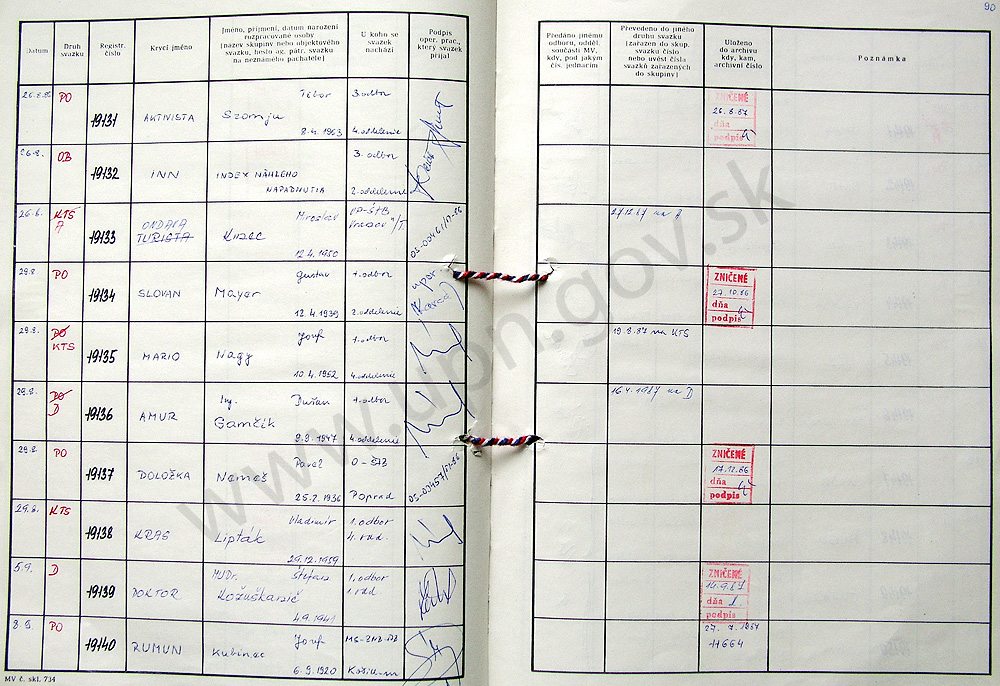 90
Datum
Druh svazku
Registr. číslo
Krycí jméno
Jméno, příjmení, datum narození
rozpracované osoby
[název skupiny nebo objektového
svazku, heslo ag. pátr. svazku
na neznámého pachatele]
U koho se
svazek
nachází
Podpis
oper. prac.,
který svazek
přijal
Předáno jinému
odboru, odděl.
součásti MV,
kdy, pod jakým
čís. jednacím
Převedeno do jiného
druhu svazku
[zařazen do skup.
svazku číslo
nebo uvést čísla
svazků zařazených
do skupiny]
Uloženo
do archivu
kdy, kam,
archivní číslo
Poznámka
PO 19131 AKTIVISTA Tibor 3. odbor
8.4.1963 4. oddelenie
ZNIČENÉ
dňa
podpis
26.8. OB 19132 INN INDEX NÁHLEHO 3. odbor
NAPADNUTIA 2. oddelenie
KTS
A
19133 ONDAVA
TURISTA
Miroslav
12.4.1950
29.8. PO 19134 SLOVAN Gustav 1. odbor
Mayer
12.4.1939 2. oddelenie
ZNIČENÉ
27.10.86
dňa
podpis
29.8. PO
KTS
19135 MARIO Jozef 1. odbor
Nagy
10.4.1952 4. oddelenie
19.8.87 na KTS
29.8. PO
D
19136 AMUR Ing. Dušan 1. odbor
Gamčík
9.9.1947 4. oddelenie
16.4.1987 na D
29.8. PO 19137 DOLOŽKA Pavel O-ŠTB
Nemeš
25.2.1936 Poprad
ZNIČENÉ
17.12.86
dňa
podpis
29.8. KTS 19138 KRAS Vladimír 1. odbor
Lipták 4. rad.
29.12.1959
5.9. D 19139 DOKTOR MUDr. Štefan 1. odbor
1. rad
4.9.1941
ZNIČENÉ
dňa
podpis
8.9. PO 19140 RUMUN Jozef
Kubinec
6.9.1920
11664
MV č. skl. 734
www.upn.gov.sk